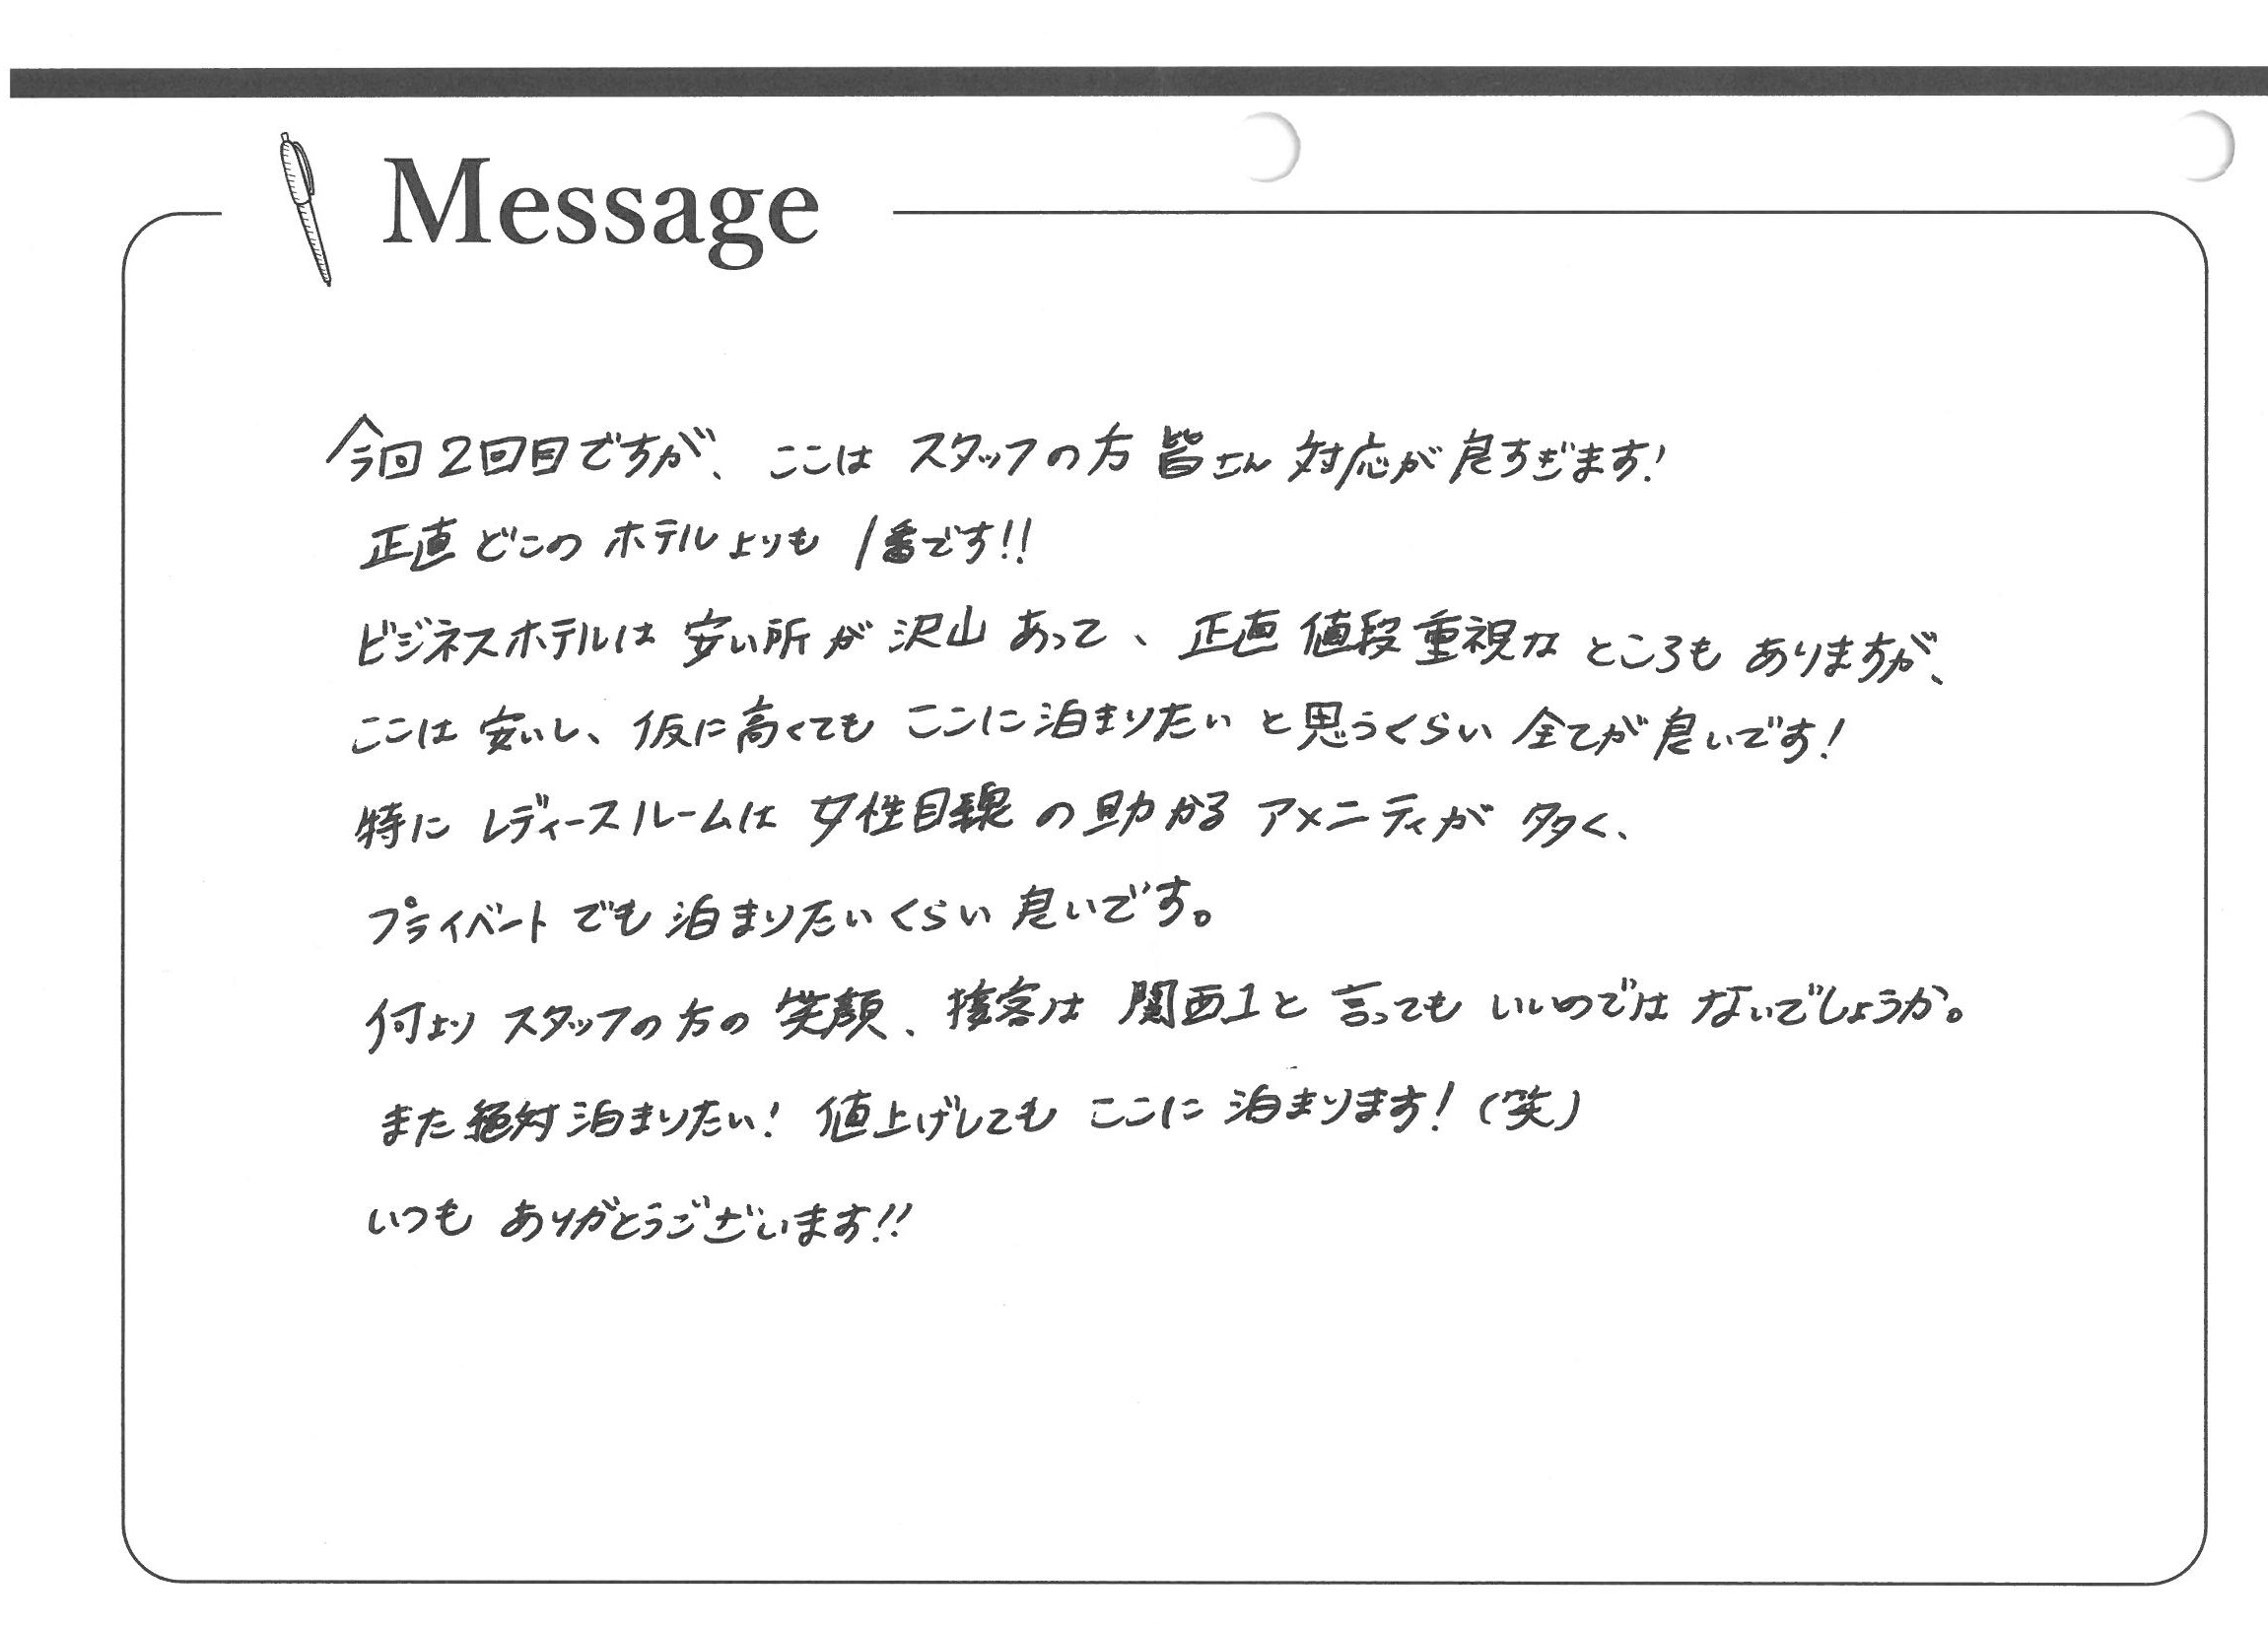 Message
今回2回目ですが、ここはスタッフの方皆さん対応が良すぎます!
正直どこのホテルよりも1番です!!
ビジネスホテルは安い所が沢山あって、正直値段重視なところもありますが、
ここは安いし、仮に高くてもここに泊まりたいと思うくらい全てが良いです!
特にレディースルームは女性目線の助かるアメニティが多く、
プライベートでも泊まりたいくらい良いです。
何よりスタッフの方の笑顔、接客は関西1と言ってもいいのではないでしょうか。
また絶対泊まりたい!値上げしてもここに泊まります!(笑)
いつもありがとうございます!!